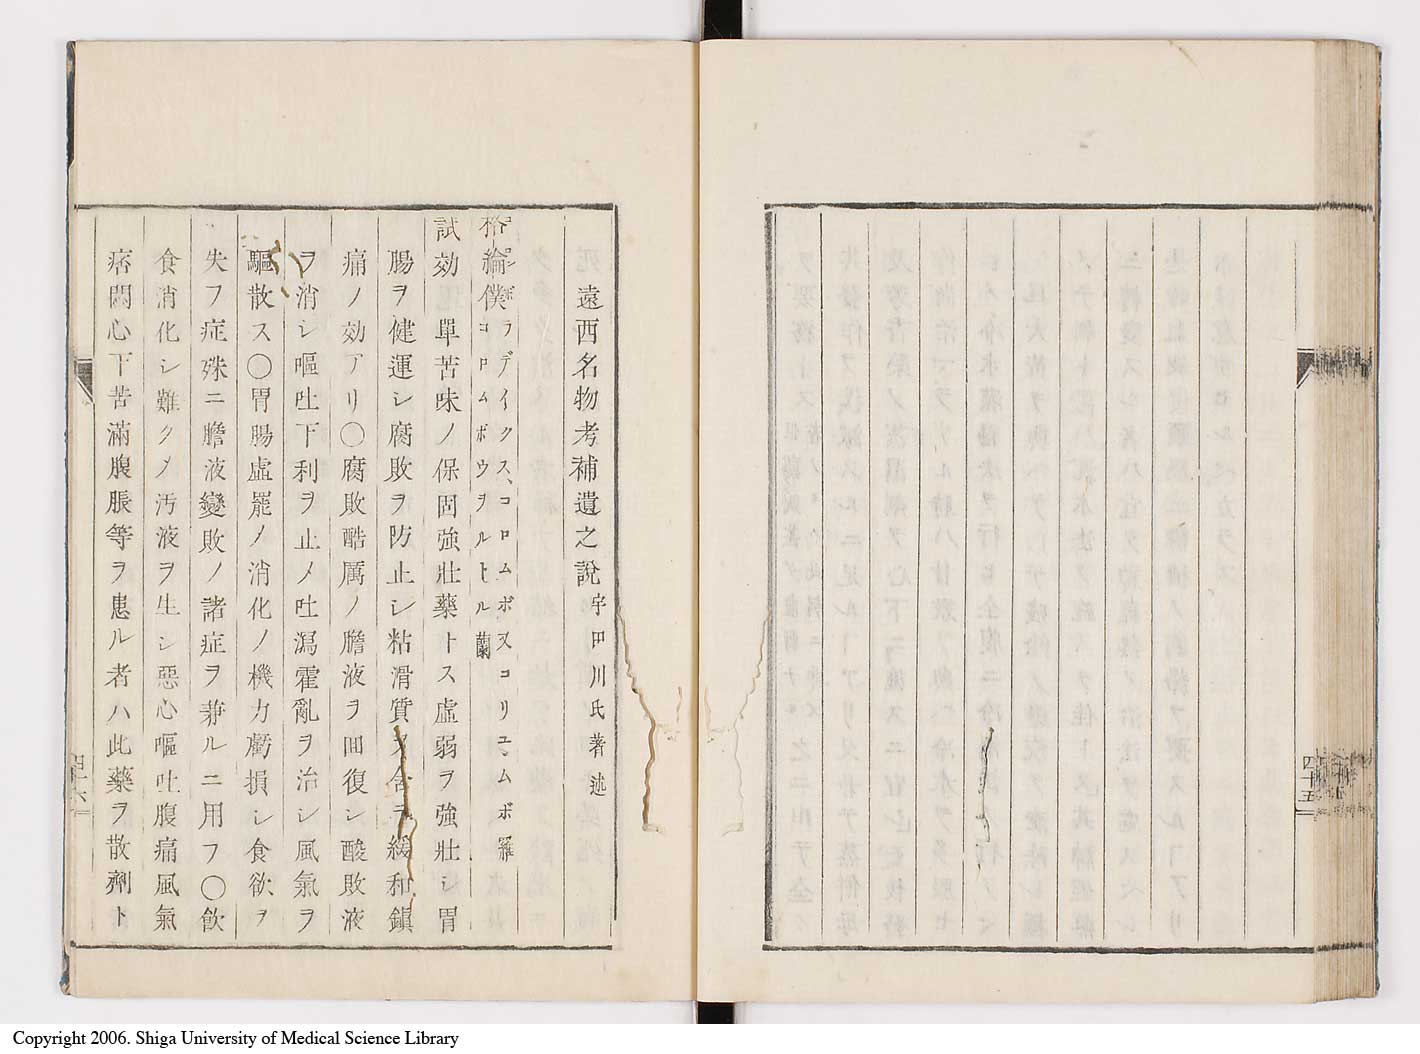 四十五
遠西名物考補遺之説 宇田川氏著述
格綸僕 コロンボ ラデイクス、コロムボ又コリユムボ 羅
コロムボウヲルトル 蘭
試効 單苦味ノ保固強壯藥トス虚弱ヲ強壯シ胃
腸ヲ健運シ腐敗ヲ防止シ粘滑質ヲ含テ緩和鎮
痛ノ効アリ〇腐敗酷厲ノ膽液ヲ囬復シ酸敗液
ヲ消シ嘔吐下利ヲ止メ吐瀉霍亂ヲ治シ風氣ヲ
驅散ス〇胃腸虚罷ノ消化ノ機力虧損シ食欲ヲ
失フ症殊ニ膽液變敗ノ諸症ヲ兼ルニ用フ〇飲
食消化シ難クメ汚液ヲ生シ惡心嘔吐腹痛風氣
痞悶心下苦滿腹脹等ヲ患ル者ハ此藥ヲ散劑ト
四十六
Copyright 2006. Shiga University of Medical Science Library